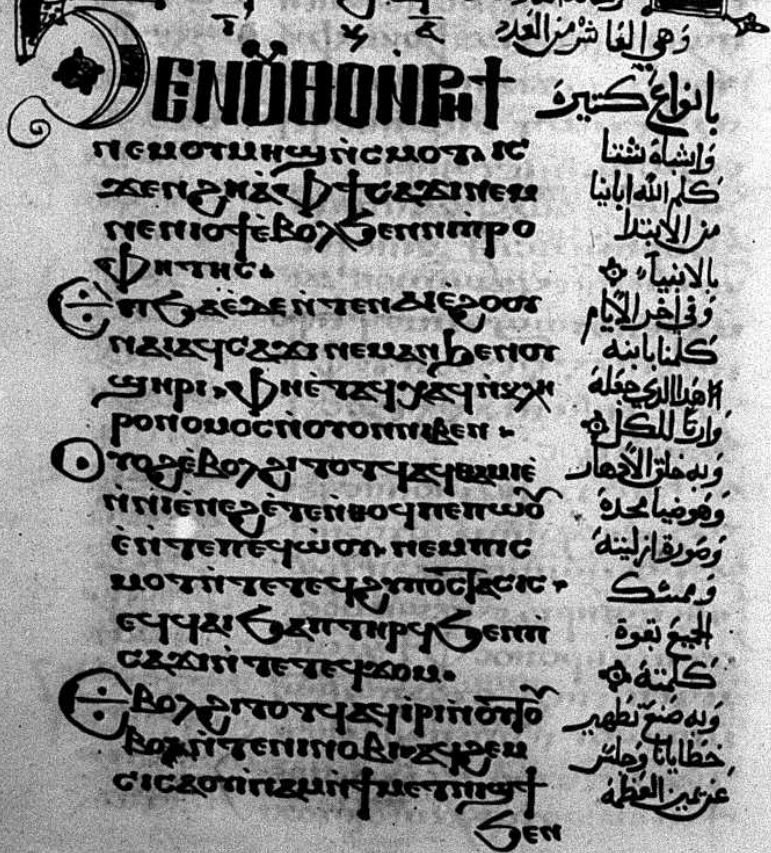 ϦⲈⲚⲞⲨⲐⲞⲚ̀ⲢⲎϮ
ⲛⲉⲙⲟⲩⲙⲏϣⲛ̀ⲥⲙⲟⲧ· ⲓⲥ
ϫⲉⲛϩⲏⲁ̀ⲫϯⲥⲁϫⲓⲛⲉⲙ
ⲛⲉⲛⲓⲟϯⲉ̀ⲃⲟⲗϧⲉⲛⲛⲓⲡⲣⲟ
ⲫⲏⲧⲏⲥ·
Ⲉⲡϧⲁⲉ̀ⲇⲉⲛ̀ⲧⲉⲛⲁⲓⲉ̀ϩⲟⲟⲩ
ⲛⲁⲓⲁϥⲥⲁϫⲓⲛⲉⲙⲁⲛϧⲉⲛⲟⲩ
ϣⲏⲣⲓ· ⲫⲏⲉ̀ⲧⲁϥⲭⲁϥⲛ̀ⲕⲗⲏ
ⲣⲟⲛⲟⲙⲟⲥⲛ̀ⲟⲩⲟⲛⲛⲓⲃⲉⲛ·
Ⲟⲩⲟϩⲉ̀ⲃⲟⲗϩⲓⲧⲟⲧϥⲁϥⲑⲁⲙⲓⲉ̀
ⲛ̀ⲛⲓⲉ̀ⲛⲉϩⲉ̀ⲧⲉⲛ̀ⲑⲟϥⲡⲉⲡⲱⲟ̅
ⲉ̀ⲛ̀ⲧⲉⲡⲉϥⲱ̀ⲟⲩ· ⲛⲉⲙⲡⲓⲥ
ⲙⲟⲧⲛ̀ⲧⲉⲧⲉϥϩⲩⲡⲟⲥⲧⲁⲥⲓⲥ·
ⲉϥϥⲁⲓϧⲁⲡⲧⲏⲣϥϧⲉⲛⲡⲓ
ⲥⲁϫⲓⲛ̀ⲧⲉⲧⲉϥϫⲟⲙ·
Ⲉⲃⲟⲗϩⲓⲧⲟⲧϥⲁϥⲓⲣⲓⲛ̀ⲟⲩⲧⲟ̅
ⲃⲟⲛ̀ⲧⲉⲛⲓⲛⲟⲃⲓ·ⲁϥϩⲉⲙ
ⲥⲓⲥⲁⲟⲩⲓⲛⲁⲙⲛ̀ϯⲙⲉⲧⲛⲓϣϯ
ϧⲉⲛ
وهى العاشر من العدد
بانواع كتيرة
واشباه شتتا
كلم الله ابانيا
من الابتدا
بالانبيا
وفى اخر الايام
كلمنا بابنه
هدا الدى جعله
وارتا للكل
وبه خلق الادهار
وهو ضيا مجده
وصورة ازليته
وممسك
الجميع بقوة
كلمته
وبه صنع تطهير
خطايانا وجلس
عن يمين العظمه